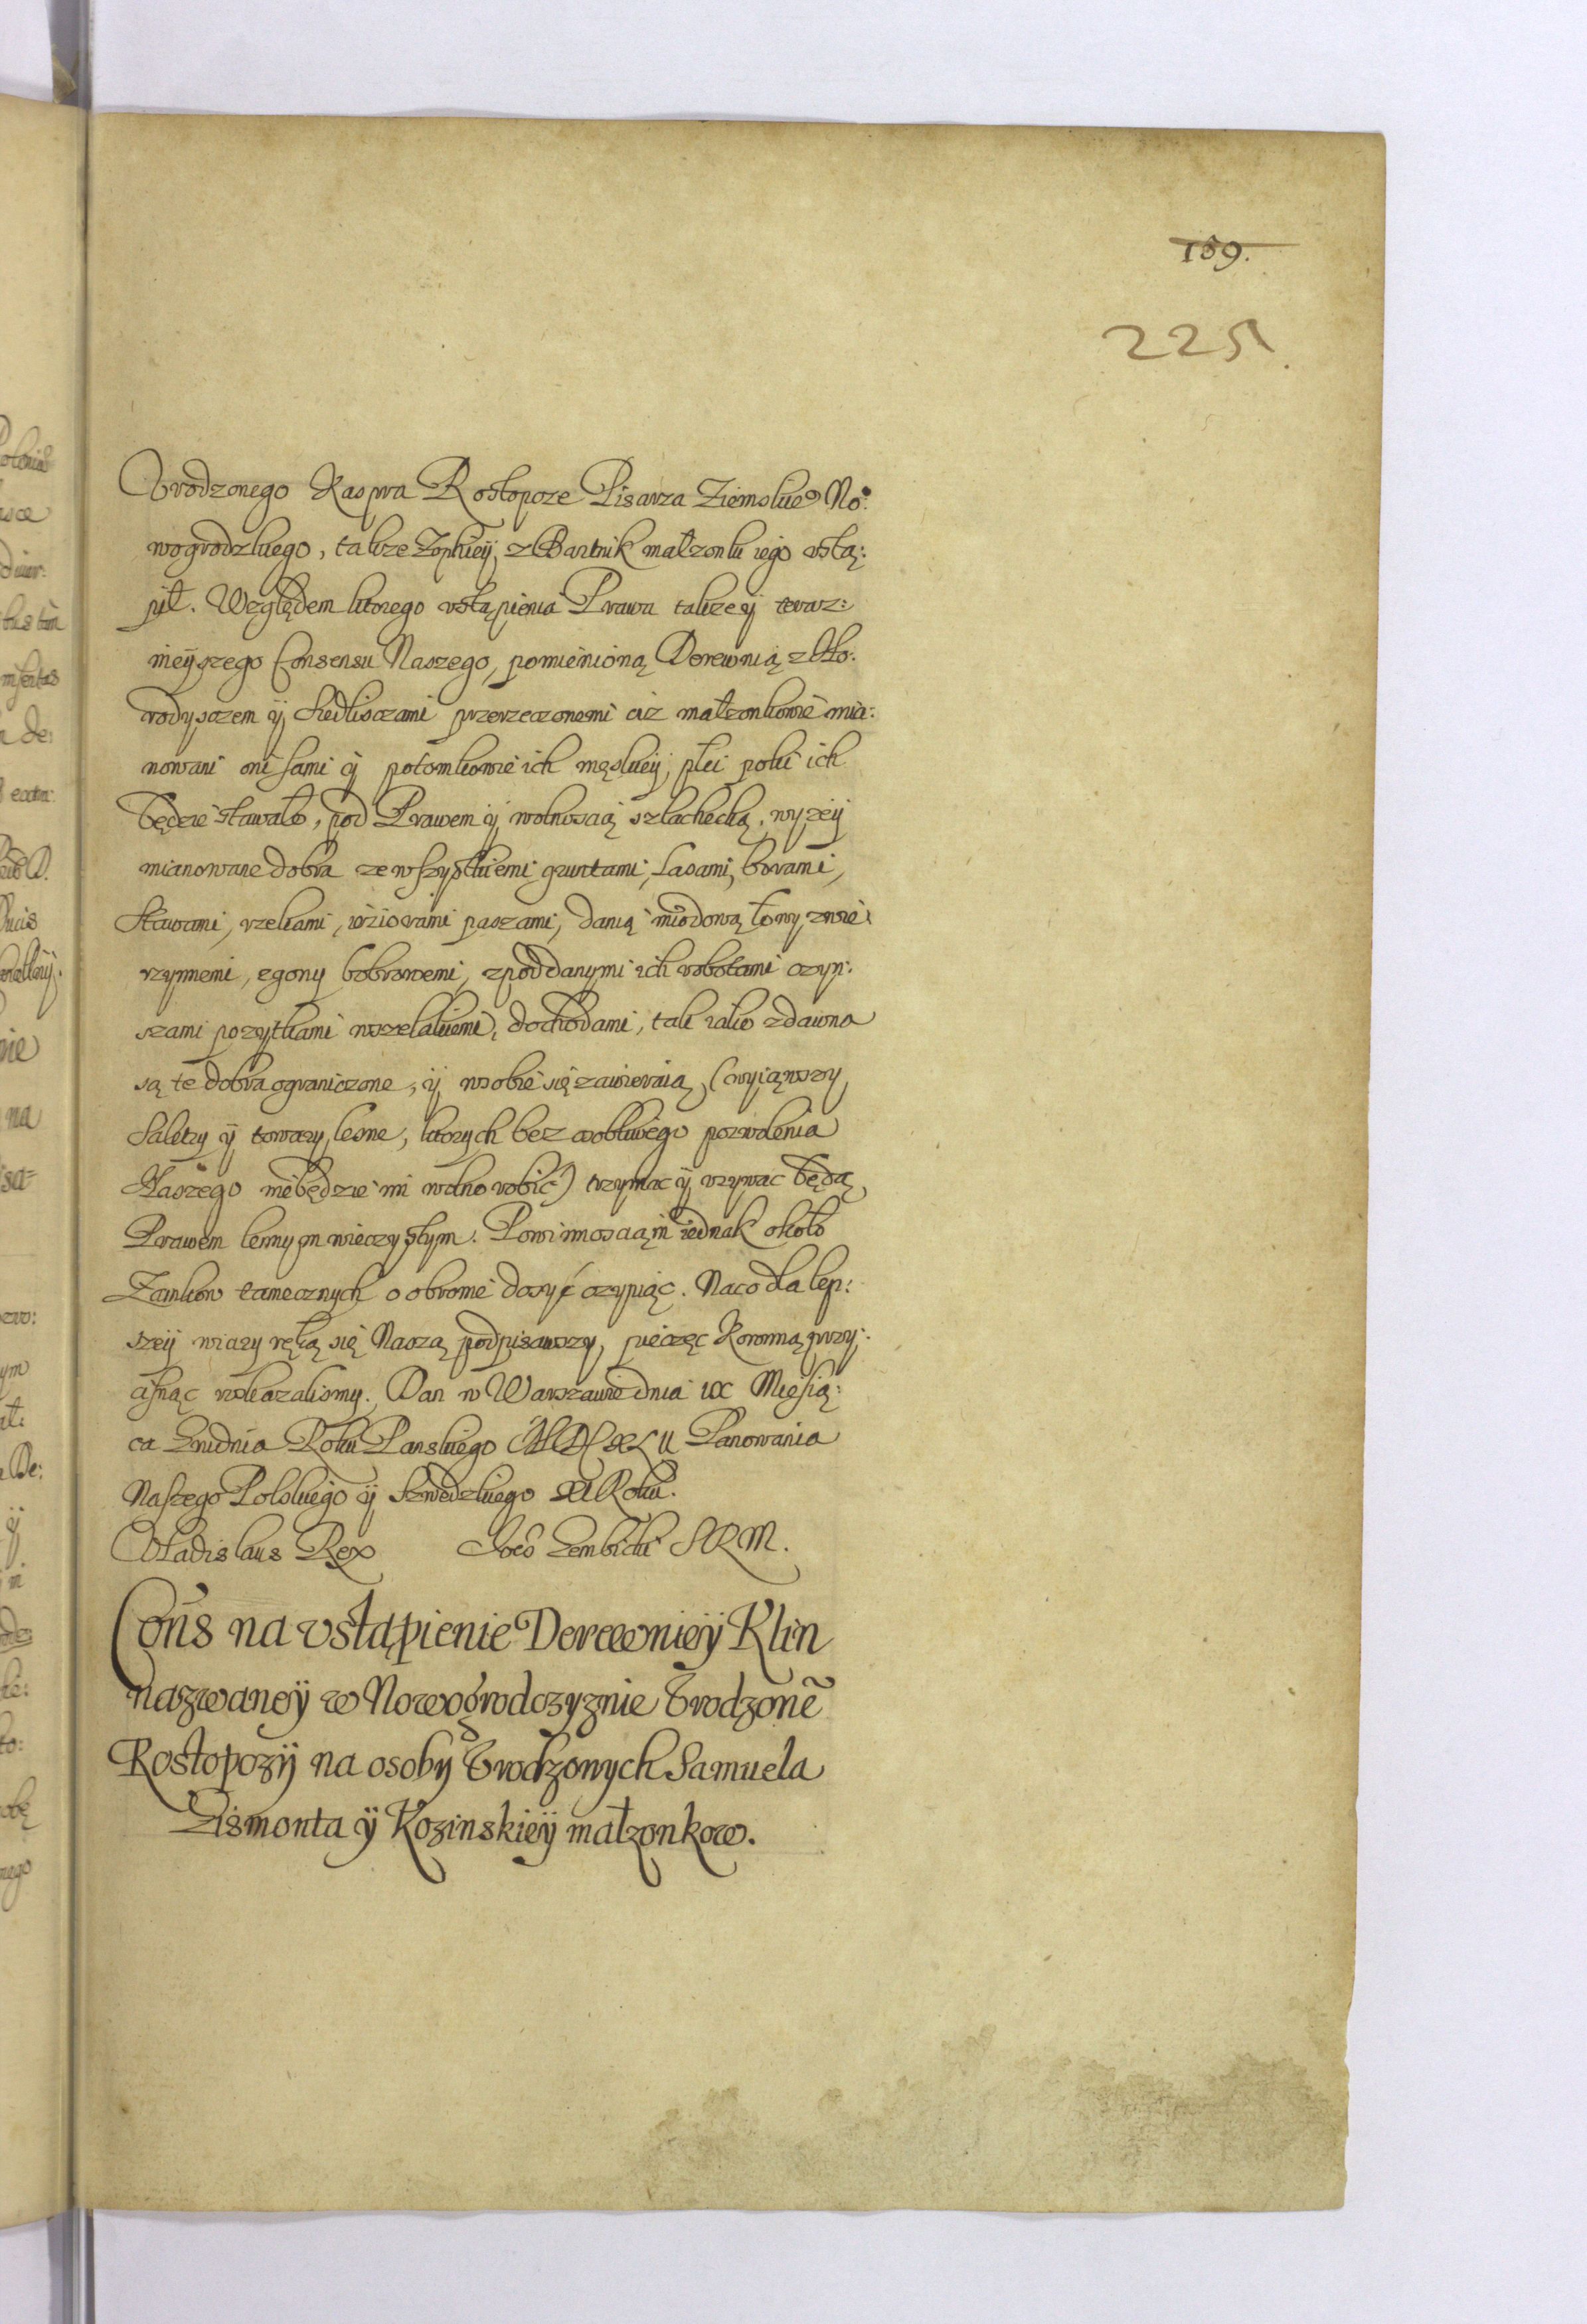 159.
225
Vrodzonego Kaspra Rostopcze Pisarza Ziemskieº No:
wogrodzkiego, takze Zophieÿ, z Bartnik małzonki iego vstą:
pił. Względem ktorego vstąpienia Prawa takze ÿ teraz:
nieÿszego Consensu Naszego, pomienioną Derewnią z Ho:
rodyszczem ÿ siedliszczami przerzeczonemi ciz małzonkowie mia:
nowani oni sami ÿ potomkowie ich męskieÿ płci poki ich
będzie stawało, pod Prawem ÿ wolnoscią szlachecką, wyzeÿ
mianowane dobra ze wszystkiemi gruntami, Lasami, borami,
Stawami, rzekami, ieziorami paszami, danią miodową łowy zwie:
rzynnemi, egony bobrowemi, z poddanymi ich robotami czyn:
szami pozytkami wszelakiemi, dochodami, tak iako zdawna
są te dobra ograniczone, ÿ w sobie się zawieraią (wyiąwszy
Saletry ÿ towary lesne, ktorych bez osobliwego pozwolenia
Naszego niebędzie im wolno robić) trzymac ÿ uzywac będą
Prawem lennym wieczystym. Powinnosciąm iednak około
Zamkow tamecznych o obronie dosyć czyniąc. Naco dla lep:
szeÿ wiary ręką się Naszą podpisawszy, pieczęc Koronną przy:
cisnąc rozkazalismy. Dan w Warszawie dnia IX Miesią:
ca Grudnia Roku Panskiego MDCXLII Panowania
Naszego Polskiego ÿ Szwedzkiego XI Roku.
Vladislaus Rex Locº Gembicki SRM.
Cons na vstąpienie Derewnieÿ Klin
nazwaneÿ w Nowogrodczyznie Vrodzonē
Rostopczÿ na osoby Vrodzonych Samuela
Zismonta ÿ Kozinskieÿ małzonkow.